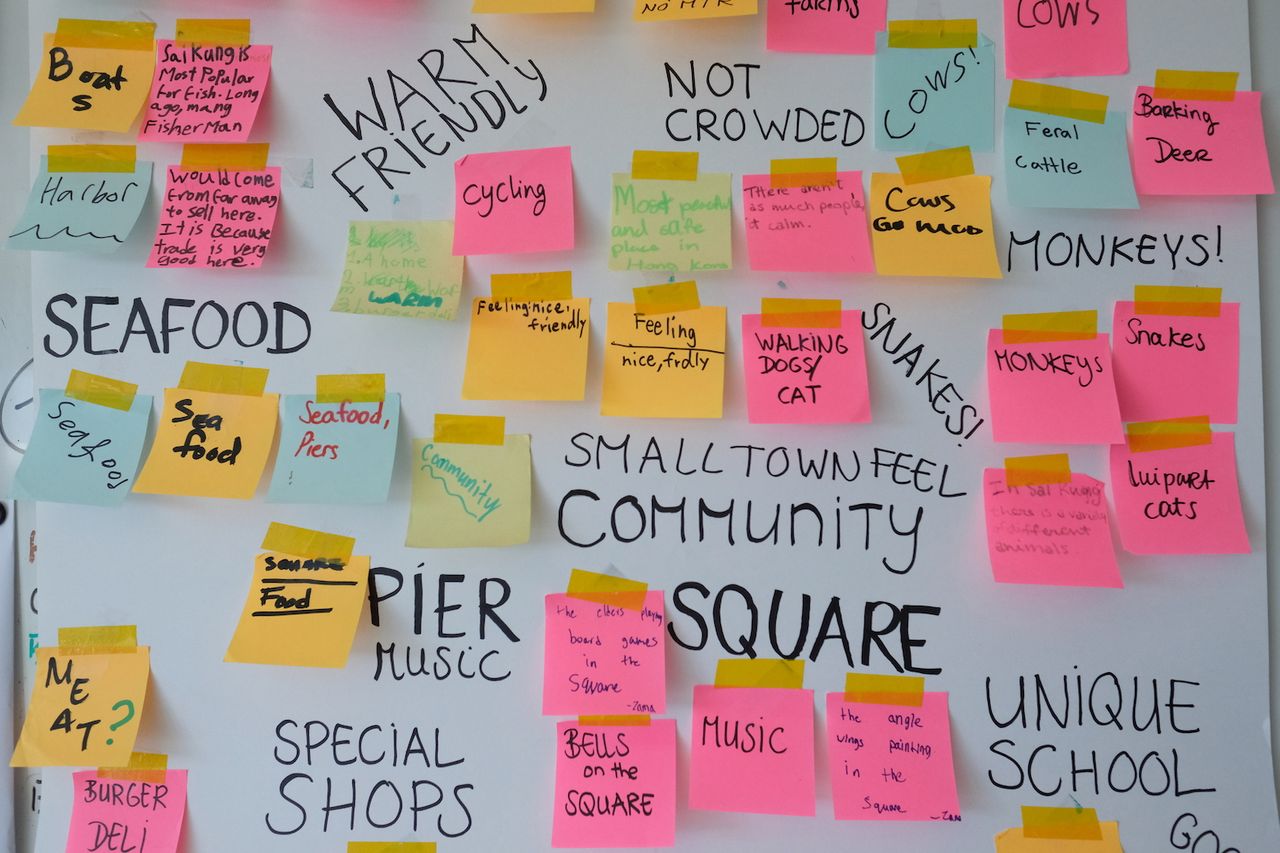 NO MTR
taking
COWS
Boat
s
Sai Kung is most
Most Popular
for fish. Long
ago, many
Fisher Man
WARM
FRIENDLY
NOT
CROWDED
COWS!
Feral
Cattle
Barking
Deer
Harbor
Would come
From far away
to sell here.
It is Because
trade is very
good here.
Cycling
Most peaceful
and safe
place in
Hong Kong
There aren't
as much people,
it calm.
Cows
Go moo
MONKEYS!
1. A home
2.
WARM
3. burger deli
SEAFOOD
Feeling: nice,
friendly
Feeling
nice, frdly
WALKING
DOGS/
CAT
SNAKES!
MONKEYS
Snakes
Seafood
Sea
food
Seafood,
Piers
Community
SMALL TOWN FEEL
COMMUNITY
In Sai Kung
there is a variety
of different
animals.
luipart
cats
SQUARE
Food
PIER
MUSIC
the elders playing
board games
in the
Square
-Zama
SQUARE
MEAT?
BURGER
DELI
SPECIAL
SHOPS
BELLS
on the
SQUARE
MUSIC
the angle
wings painting
in the
Square
-Zama
UNIQUE
SCHOOL